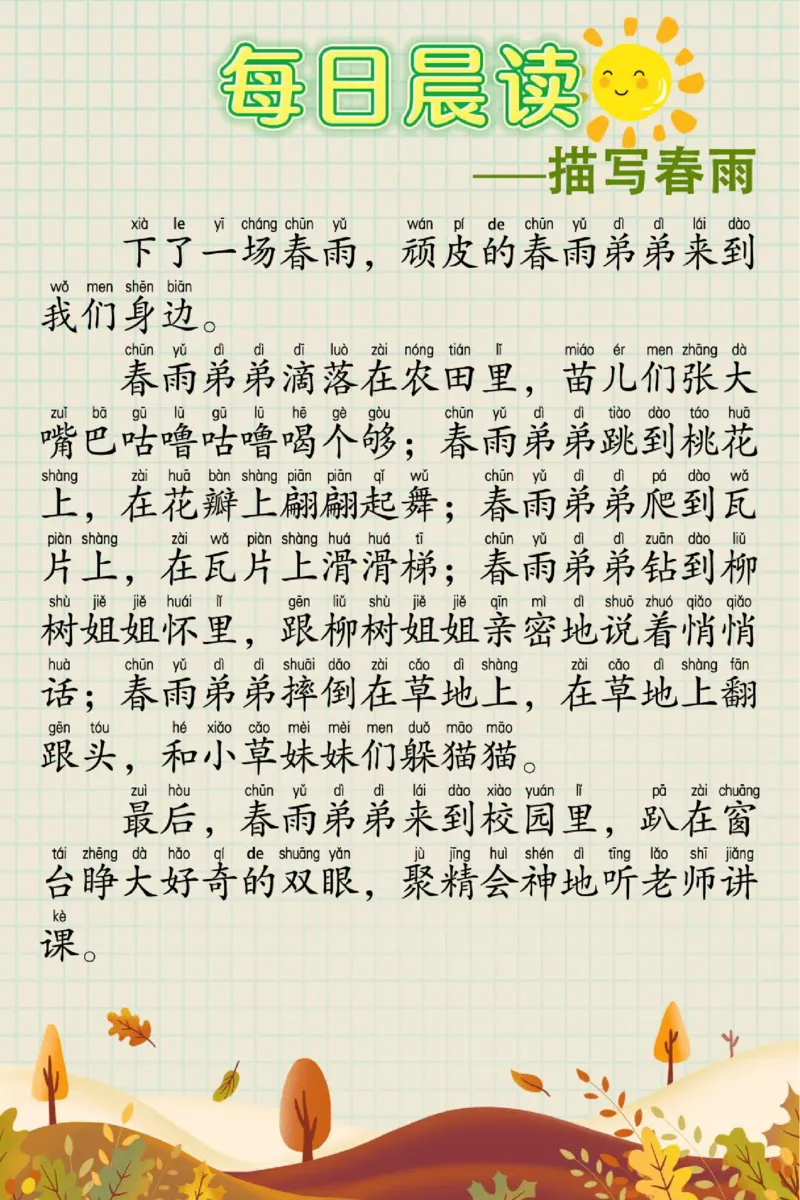 每日晨读
——描写春雨
xià le yī cháng chūn yǔ wán pí de chūn yǔ dì dì lái dào
下了一场春雨，顽皮的春雨弟弟来到
wǒ men shēn biān
我们身边。
chūn yǔ dì dì dī luò zài nóng tián lǐ miáo ér men zhāng dà
春雨弟弟滴落在农田里，苗儿们张大
zuǐ bā gū lū gū lū hē gè gòu chūn yǔ dì dì tiào dào táo huā
嘴巴咕噜咕噜喝个够；春雨弟弟跳到桃花
shàng zài huā bàn shàng piān piān qǐ wǔ chūn yǔ dì dì pá dào wǎ
上，在花瓣上翩翩起舞；春雨弟弟爬到瓦
piàn shàng zài wǎ piàn shàng huá huá tī chūn yǔ dì dì zuān dào liǔ
片上，在瓦片上滑滑梯；春雨弟弟钻到柳
shù jiě jiě huái lǐ gēn liǔ shù jiě jiě qīn mì dì shuō zhuó qiǎo qiǎo
树姐姐怀里，跟柳树姐姐亲密地说着悄悄
huà chūn yǔ dì dì shuāi dǎo zài cǎo dì shàng zài cǎo dì shàng fān
话；春雨弟弟摔倒在草地上，在草地上翻
gēn tóu hé xiǎo cǎo mèi mèi men duǒ māo māo
跟头，和小草妹妹们躲猫猫。
zuì hòu chūn yǔ dì dì lái dào xiào yuán lǐ pā zài chuāng
最后，春雨弟弟来到校园里，趴在窗
tái zhēng dà hǎo qí de shuāng yǎn jù jīng huì shén dì tīng lǎo shī jiǎng
台睁大好奇的双眼，聚精会神地听老师讲
kè
课。